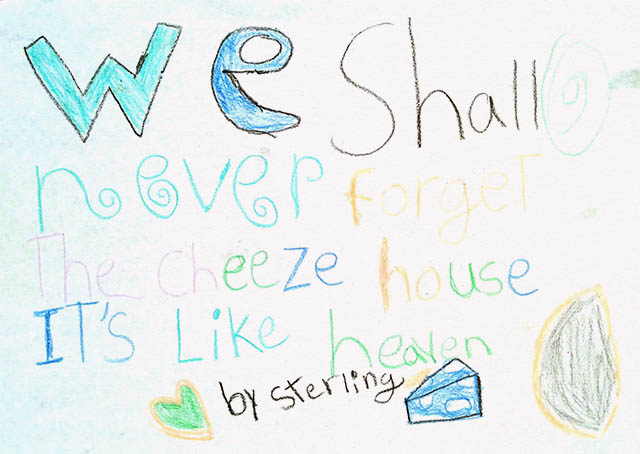 we Shall
never forget
The cheeze house
IT's Like heaven
by sterling